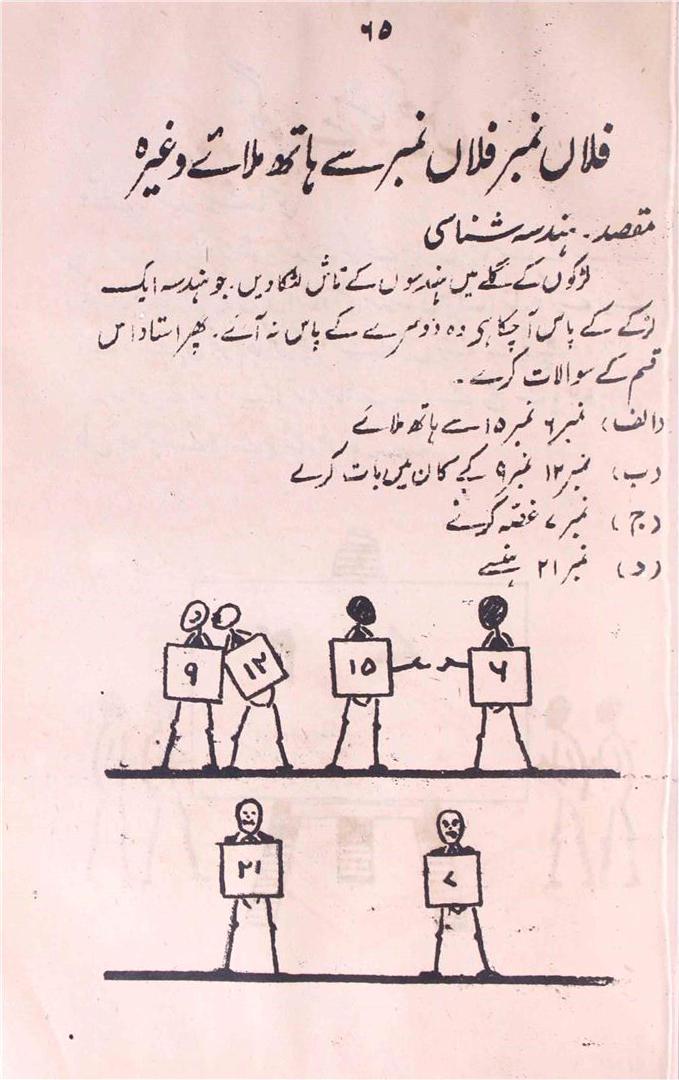 ۶۵
فلاں نمبر فلاں نمبر سے ہاتھ ملائے وغیرہ
مقصد۔ ہندسہ شناسی
لڑکوں کے گلے میں ہندسوں کے تاش لٹکا دیں۔ جو ہندسہ ایک
لڑکے کے پاس آ چکا ہی وہ دوسرے کے پاس نہ آئے۔ پھر استاد اس
قسم کے سوالات کرے۔
(الف) نمبر ۶ نمبر ۱۵ سے ہاتھ ملائے
(ب) نمبر ۱۲ نمبر ۹ کے کان میں بات کرے
(ج) نمبر ۷ غصّہ کرنے
(د) نمبر ۲۱ ہنسے
۶ ۱۵ ۱۲ ۹
۷ ۲۱